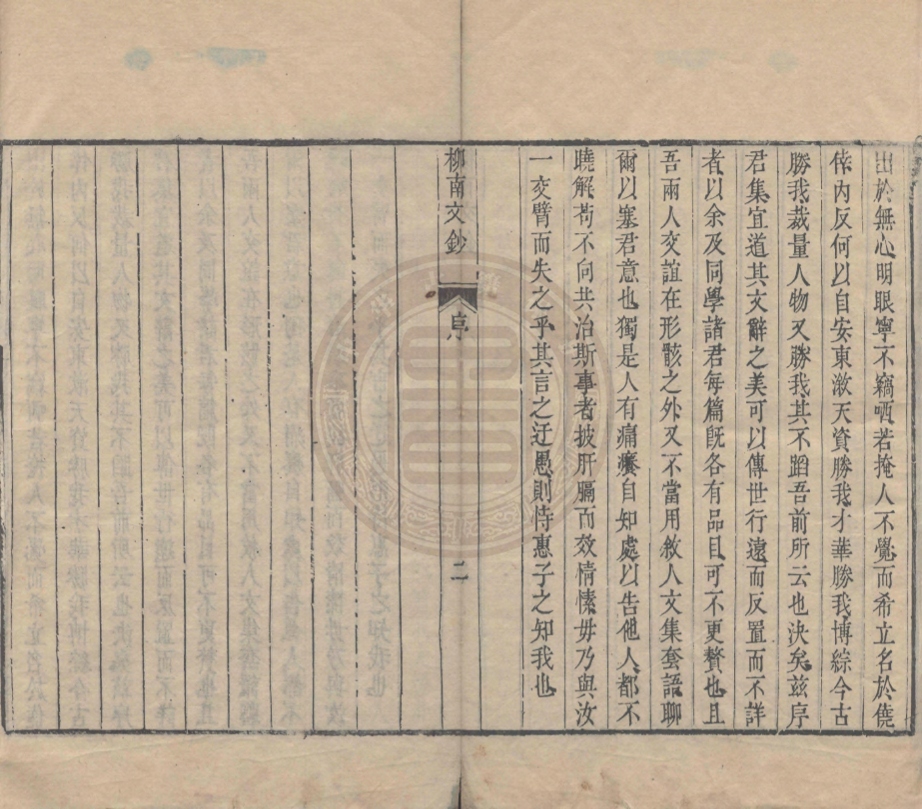 出於無心明眼寧不竊哂若掩人不覺而希立名於僥
倖內反何以自安東漵天資勝我才華勝我博綜今古
勝我裁量人物又勝我其不蹈吾前所云也決矣茲序
君集宜道其文辭之美可以傳世行遠而反置而不詳
者以余及同學諸君每篇旣各有品目可不更贅也且
吾兩人交誼在形骸之外又不當用敘人文集套語聊
爾以塞君意也獨是人有痛癢自知處以告他人都不
曉解苟不向共治斯事者披肝膈而效情愫毋乃與汝
一交臂而失之乎其言之迂愚則恃惠子之知我也
柳南文鈔
序
二